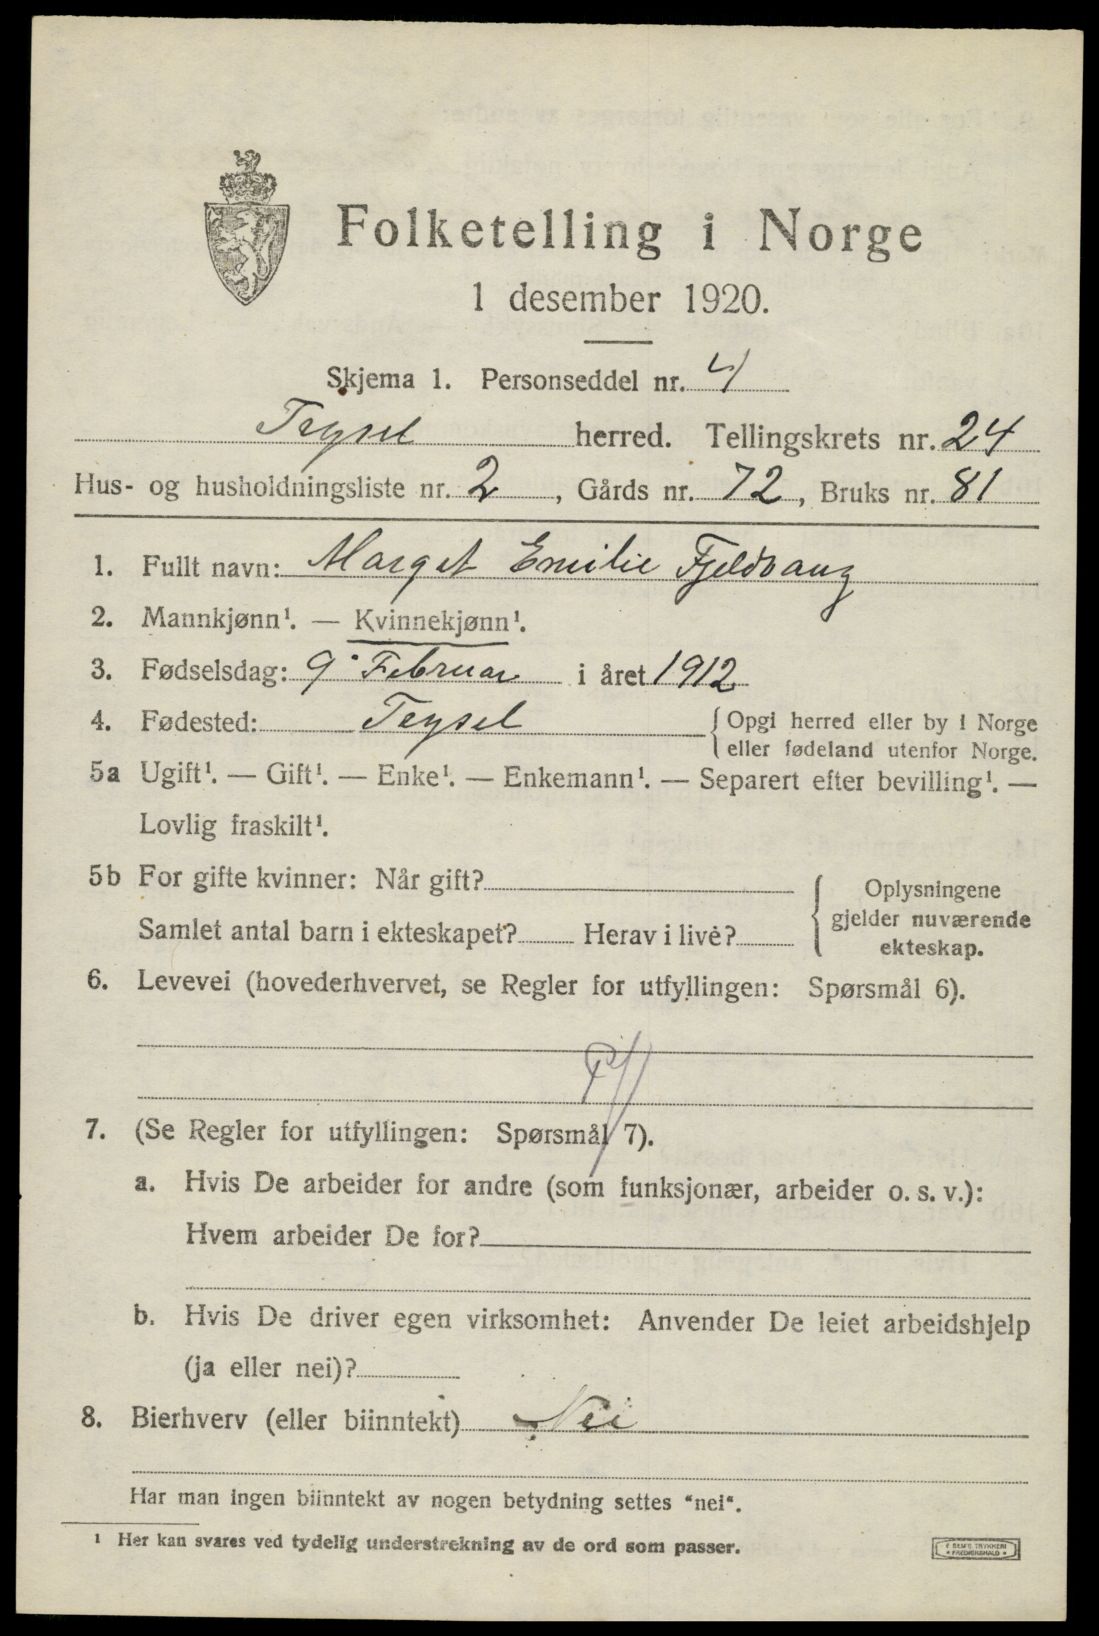 Folketelling i Norge
1 desember 1920.
Skjema 1. Personseddel nr. 4
Trysel herred. Tellingskrets nr. 24
Hus- og husholdningsliste nr. 2, Gårds nr. 72, Bruks nr. 81
1. Fullt navn: Margit Emilie Fjeldvang
2. Mannkjønn¹. — Kvinnekjønn¹.
3. Fødselsdag: 9. Februar i året 1912
4. Fødested: Trysel {Opgi herred eller by i Norge
eller fødeland utenfor Norge.
5a Ugift¹. — Gift¹. — Enke¹. — Enkemann¹. — Separert efter bevilling¹. —
Lovlig fraskilt¹.
5b For gifte kvinner: Når gift?
Samlet antal barn i ekteskapet? Herav i live?
{ Oplysningene
gjelder nuværende
ekteskap.
6. Levevei (hovederhvervet, se Regler for utfyllingen: Spørsmål 6).
7. (Se Regler for utfyllingen: Spørsmål 7).
a. Hvis De arbeider for andre (som funksjonær, arbeider o. s. v.):
Hvem arbeider De for?
b. Hvis De driver egen virksomhet: Anvender De leiet arbeidshjelp
(ja eller nei)?
8. Bierhverv (eller biinntekt) Nei
Har man ingen biinntekt av nogen betydning settes "nei".
¹ Her kan svares ved tydelig understrekning av de ord som passer.